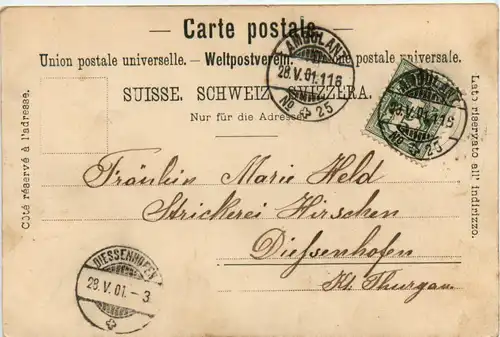 Carte postale.
Union postale universelle. – Weltpostverein. – Unione postale universale.
SUISSE. SCHWEIZ. SVIZZERA.
Nur für die Adresse.
Côté réservé à l'adresse.
Lato riservato all' indirizzo.
AMBULANT
28.V.01.116
No 25
AMBULANT
28.V.01.116
No 25
Fräulein Marie Held
Strickerei Hirschen
Diessenhofen
Kt. Thurgau.
DIESSENHOFEN
28.V.01.-3